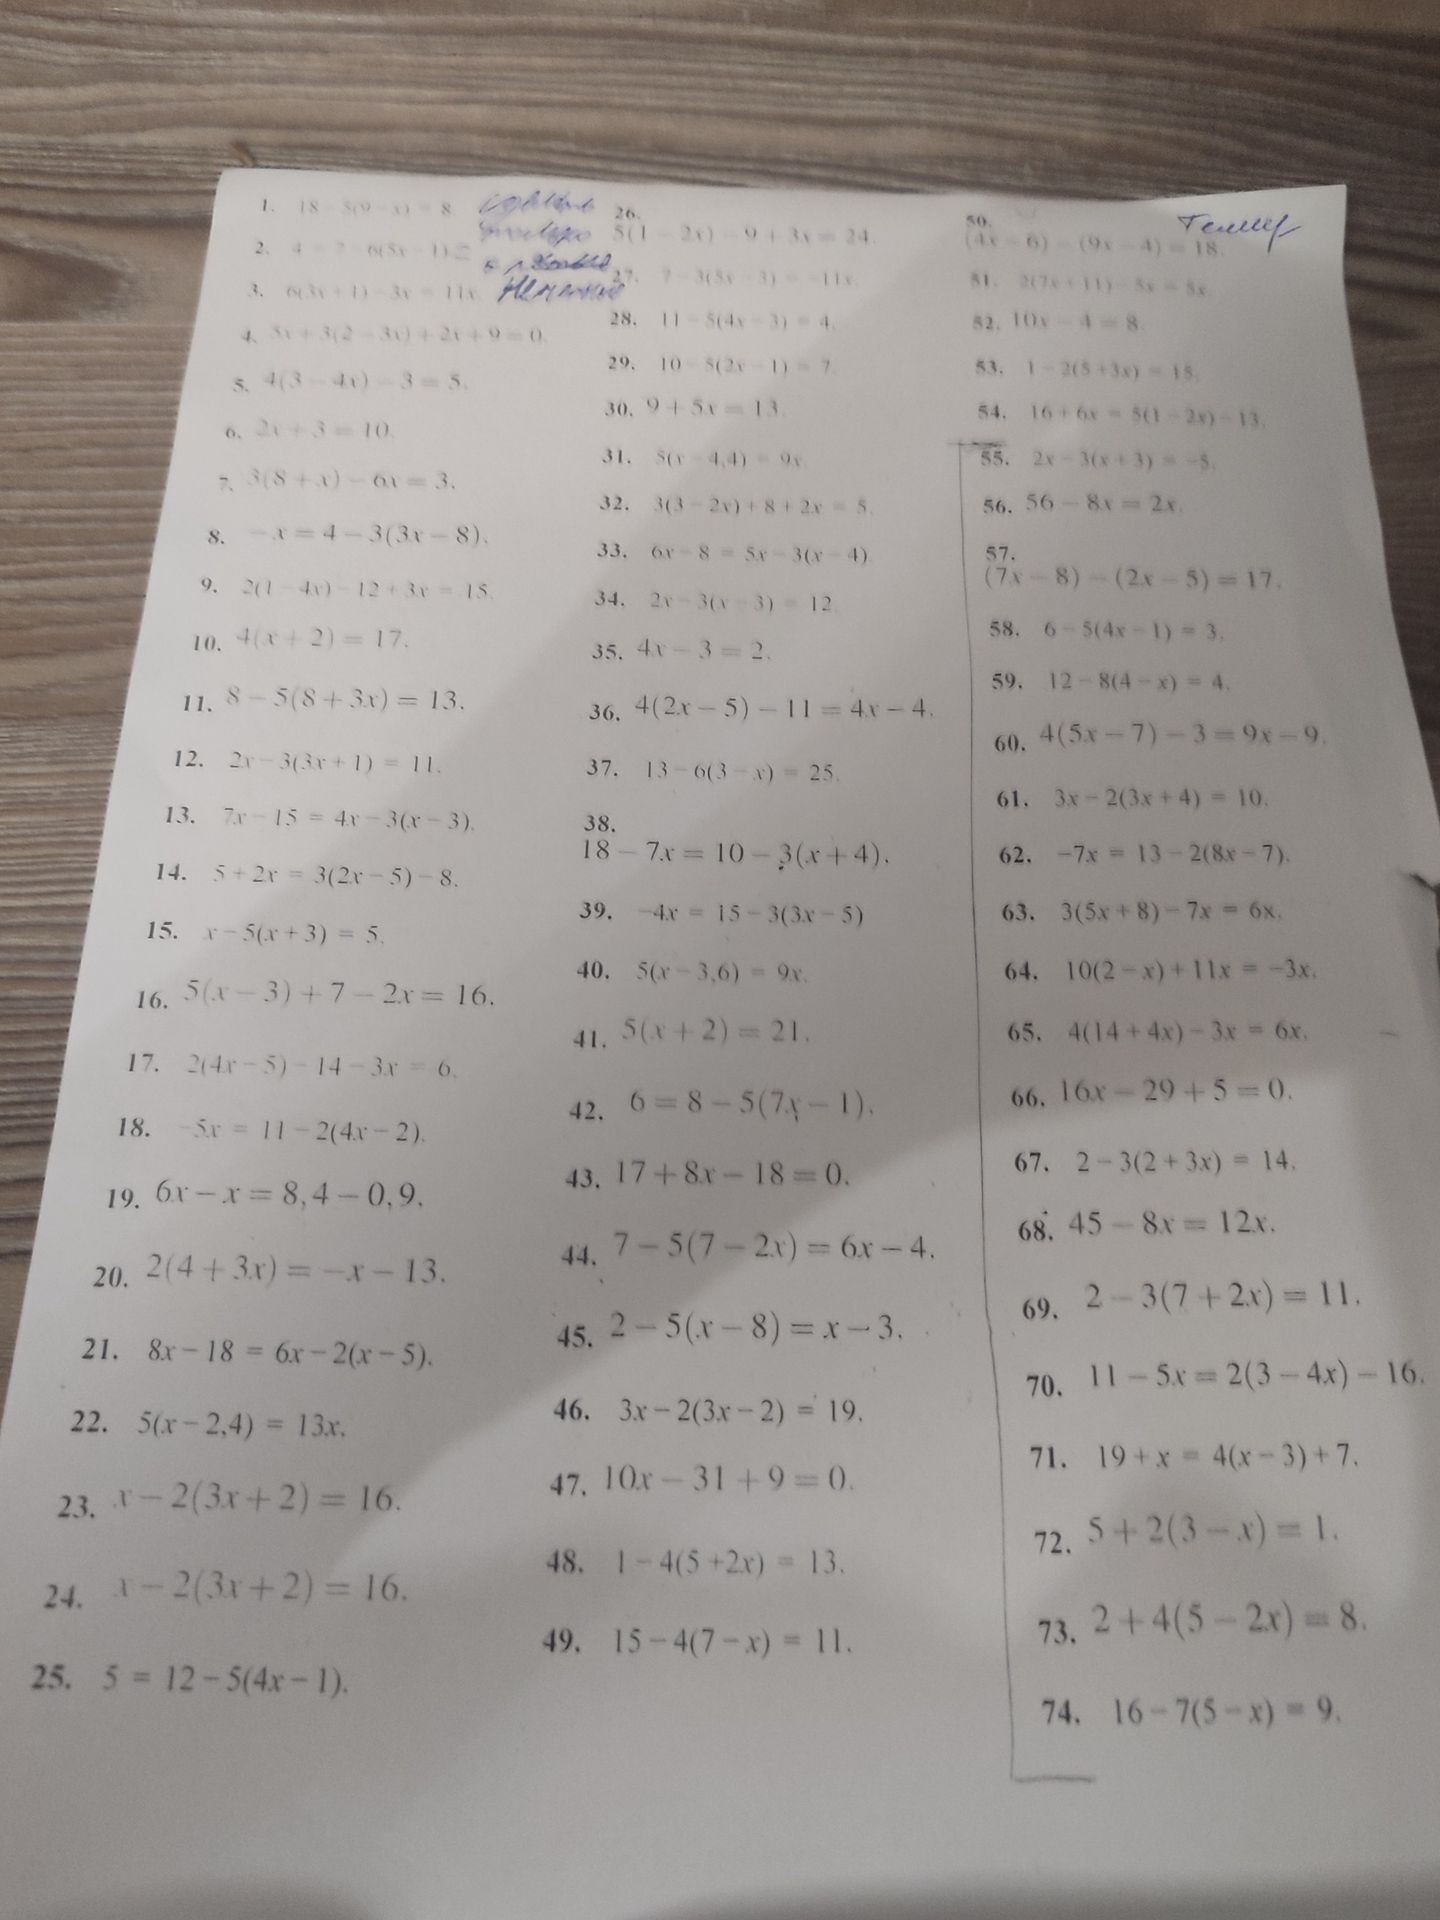 1. 18 − 5(9 − x) = 8.
2. 4 = 7 − 6(5x − 1)
3. 6(3x + 1) − 3x = 11x.
4. 5x + 3(2 − 3x) + 2x + 9 = 0.
5. 4(3 − 4x) − 3 = 5.
6. 2x + 3 = 10.
7. 3(8 + x) − 6x = 3.
8. −x = 4 − 3(3x − 8).
9. 2(1 − 4x) − 12 + 3x = 15.
10. 4(x + 2) = 17.
11. 8 − 5(8 + 3x) = 13.
12. 2x − 3(3x + 1) = 11.
13. 7x − 15 = 4x − 3(x − 3).
14. 5 + 2x = 3(2x − 5) − 8.
15. x − 5(x + 3) = 5.
16. 5(x − 3) + 7 − 2x = 16.
17. 2(4x − 5) − 14 − 3x = 6.
18. −5x = 11 − 2(4x − 2).
19. 6x − x = 8,4 − 0,9.
20. 2(4 + 3x) = −x − 13.
21. 8x − 18 = 6x − 2(x − 5).
22. 5(x − 2,4) = 13x.
23. x − 2(3x + 2) = 16.
24. x − 2(3x + 2) = 16.
25. 5 = 12 − 5(4x − 1).
26.
5(1 − 2x) − 9 + 3x = 24.
27. 7 − 3(5x − 3) = −11x.
28. 11 − 5(4x − 3) = 4.
29. 10 − 5(2x − 1) = 7.
30. 9 + 5x = 13.
31. 5(x − 4,4) = 9x.
32. 3(3 − 2x) + 8 + 2x = 5.
33. 6x − 8 = 5x − 3(x − 4).
34. 2x − 3(x − 3) = 12.
35. 4x − 3 = 2.
36. 4(2x − 5) − 11 = 4x − 4.
37. 13 − 6(3 − x) = 25.
38.
18 − 7x = 10 − 3(x + 4).
39. −4x = 15 − 3(3x − 5)
40. 5(x − 3,6) = 9x.
41. 5(x + 2) = 21.
42. 6 = 8 − 5(7x − 1).
43. 17 + 8x − 18 = 0.
44. 7 − 5(7 − 2x) = 6x − 4.
45. 2 − 5(x − 8) = x − 3.
46. 3x − 2(3x − 2) = 19.
47. 10x − 31 + 9 = 0.
48. 1 − 4(5 + 2x) = 13.
49. 15 − 4(7 − x) = 11.
50.
(4x − 6) − (9x − 4) = 18.
51. 2(7x + 11) − 5x = 8x.
52. 10x − 4 = 8.
53. 1 − 2(5 + 3x) = 15.
54. 16 + 6x = 5(1 − 2x) − 13.
55. 2x − 3(x + 3) = −5.
56. 56 − 8x = 2x.
57.
(7x − 8) − (2x − 5) = 17.
58. 6 − 5(4x − 1) = 3.
59. 12 − 8(4 − x) = 4.
60. 4(5x − 7) − 3 = 9x − 9.
61. 3x − 2(3x + 4) = 10.
62. −7x = 13 − 2(8x − 7).
63. 3(5x + 8) − 7x = 6x.
64. 10(2 − x) + 11x = −3x.
65. 4(14 + 4x) − 3x = 6x.
66. 16x − 29 + 5 = 0.
67. 2 − 3(2 + 3x) = 14.
68. 45 − 8x = 12x.
69. 2 − 3(7 + 2x) = 11.
70. 11 − 5x = 2(3 − 4x) − 16.
71. 19 + x = 4(x − 3) + 7.
72. 5 + 2(3 − x) = 1.
73. 2 + 4(5 − 2x) = 8.
74. 16 − 7(5 − x) = 9.